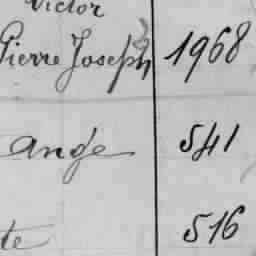 Victor
Pierre Joseph 1968
ange 541
te 516